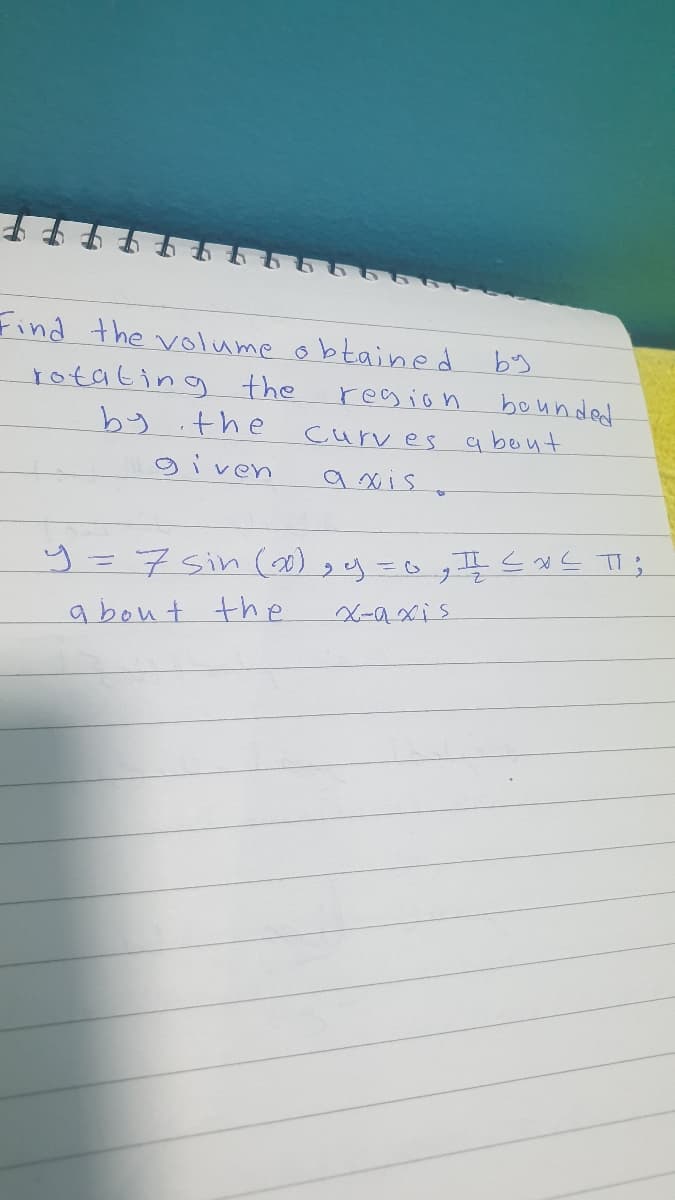 Find the volume obtained by
rotating the region bounded
by the curves about
given axis.
y = 7 sin (x), y = 0, π/2 ≤ x ≤ π;
about the x-axis